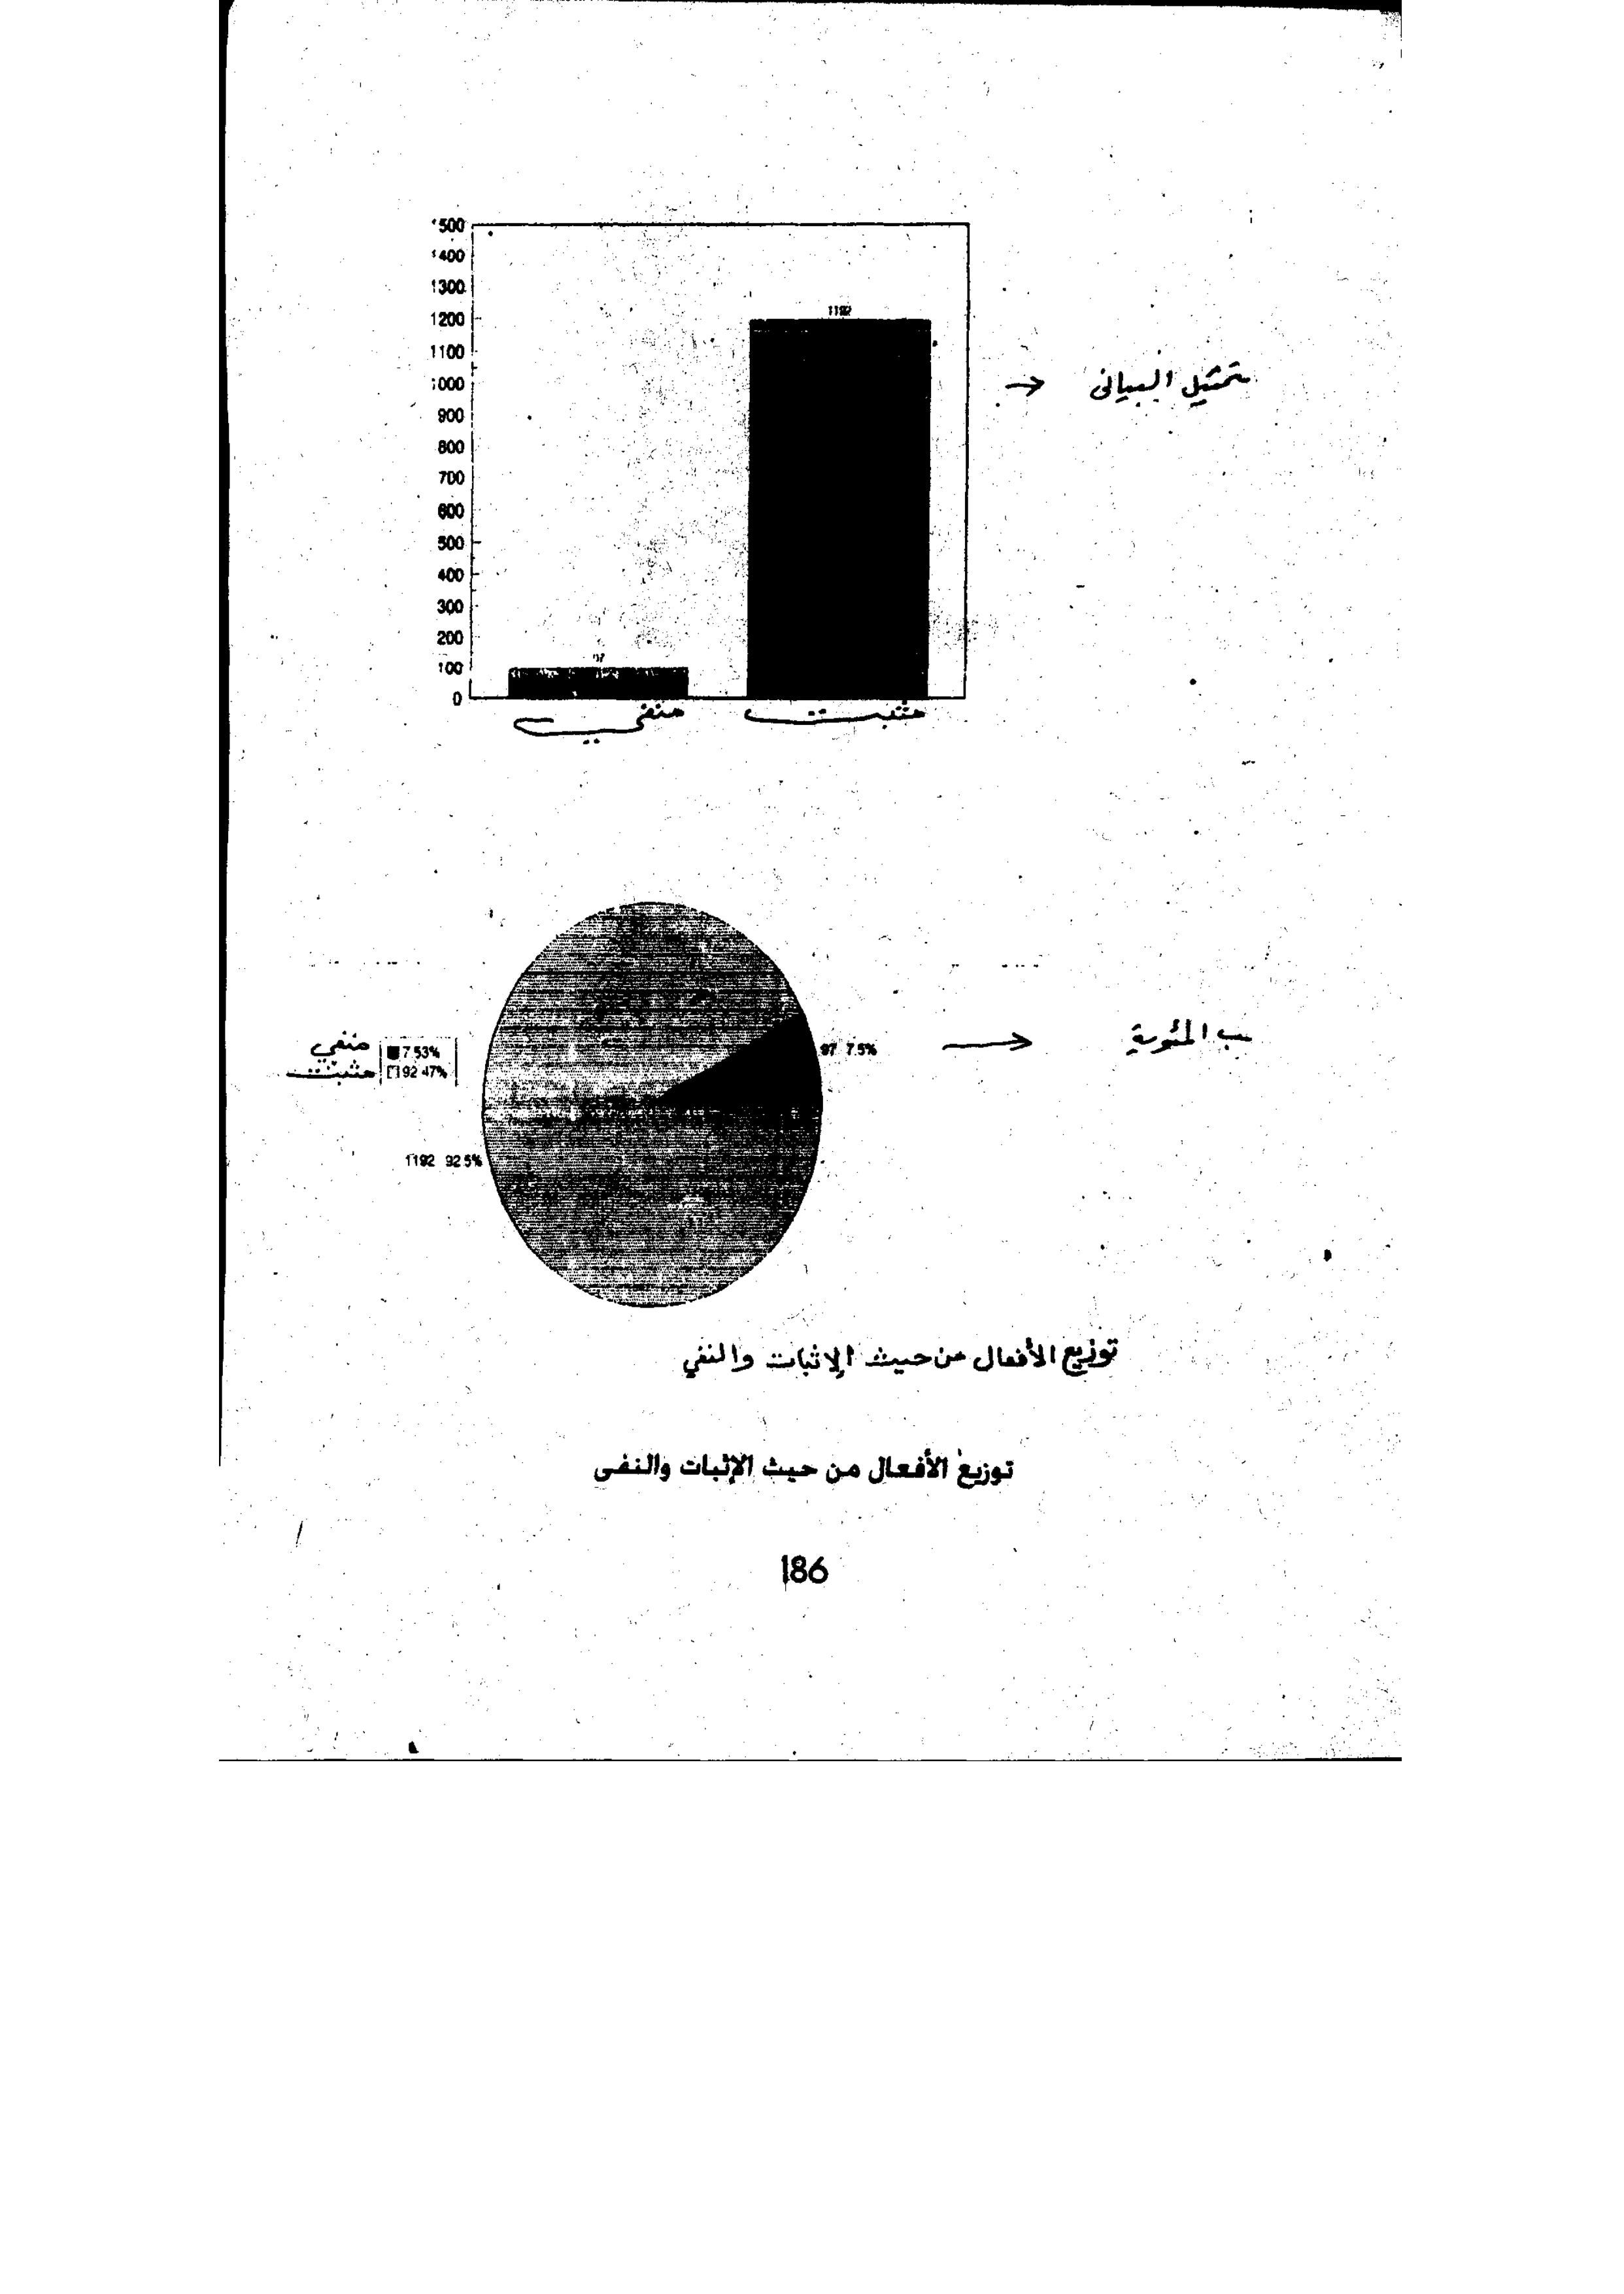 1500
1400
1300
1200
1100
1000
900
800
700
600
500
400
300
200
100
0
1192
97
مثبت
منفي
تمثيل البياني
ب المئوية
97 7.5%
منفي 7.53%
مثبت 92.47%
1192 92.5%
توزيع الأفعال من حيث الإثبات والنفي
توزيع الأفعال من حيث الإثبات والنفى
186